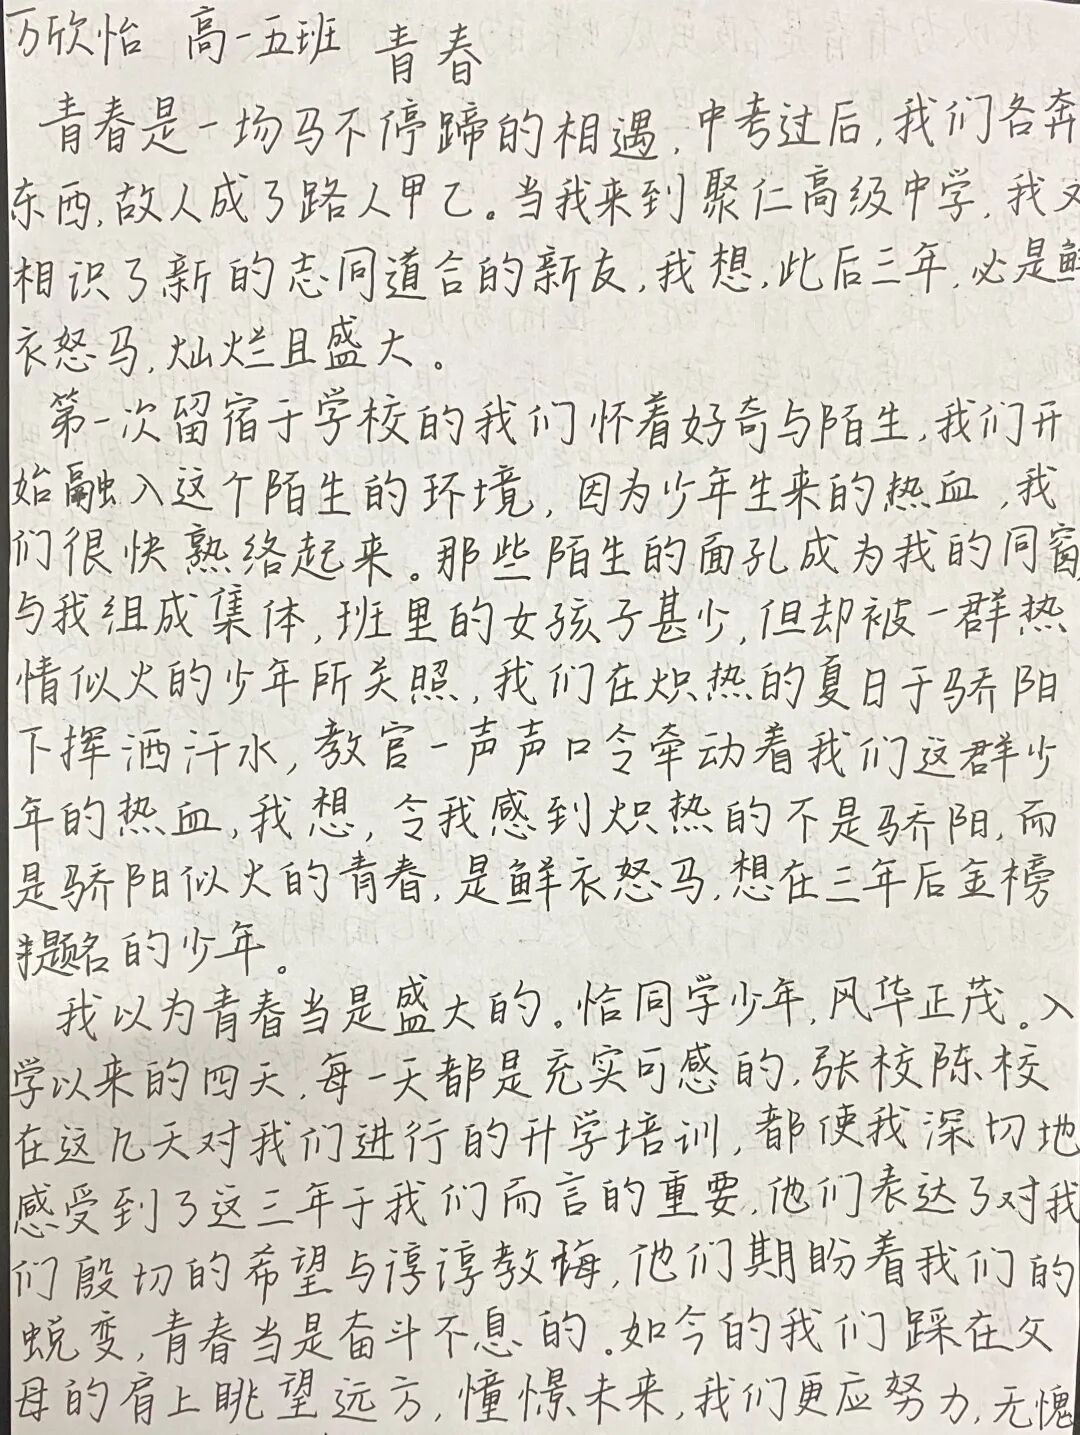 万欣怡 高一五班 青春
青春是一场马不停蹄的相遇，中考过后，我们各奔
东西，故人成了路人甲乙。当我来到聚仁高级中学，我又
相识了新的志同道合的新友，我想，此后三年，必是鲜
衣怒马，灿烂且盛大。
第一次留宿于学校的我们怀着好奇与陌生，我们开
始融入这个陌生的环境，因为少年生来的热血，我
们很快熟络起来。那些陌生的面孔成为我的同窗
与我组成集体，班里的女孩子甚少，但却被一群热
情似火的少年所关照，我们在炽热的夏日于骄阳
下挥洒汗水，教官一声声口令牵动着我们这群少
年的热血，我想，令我感到炽热的不是骄阳，而
是骄阳似火的青春，是鲜衣怒马，想在三年后金榜
提名的少年。
我以为青春当是盛大的。恰同学少年，风华正茂。入
学以来的四天，每一天都是充实可感的，张校陈校
在这几天对我们进行的开学培训，都使我深切地
感受到了这三年于我们而言的重要，他们表达了对我
们殷切的希望与谆谆教诲，他们期盼着我们的
蜕变，青春当是奋斗不息的。如今的我们踩在父
母的肩上眺望远方，憧憬未来，我们更应努力，无愧